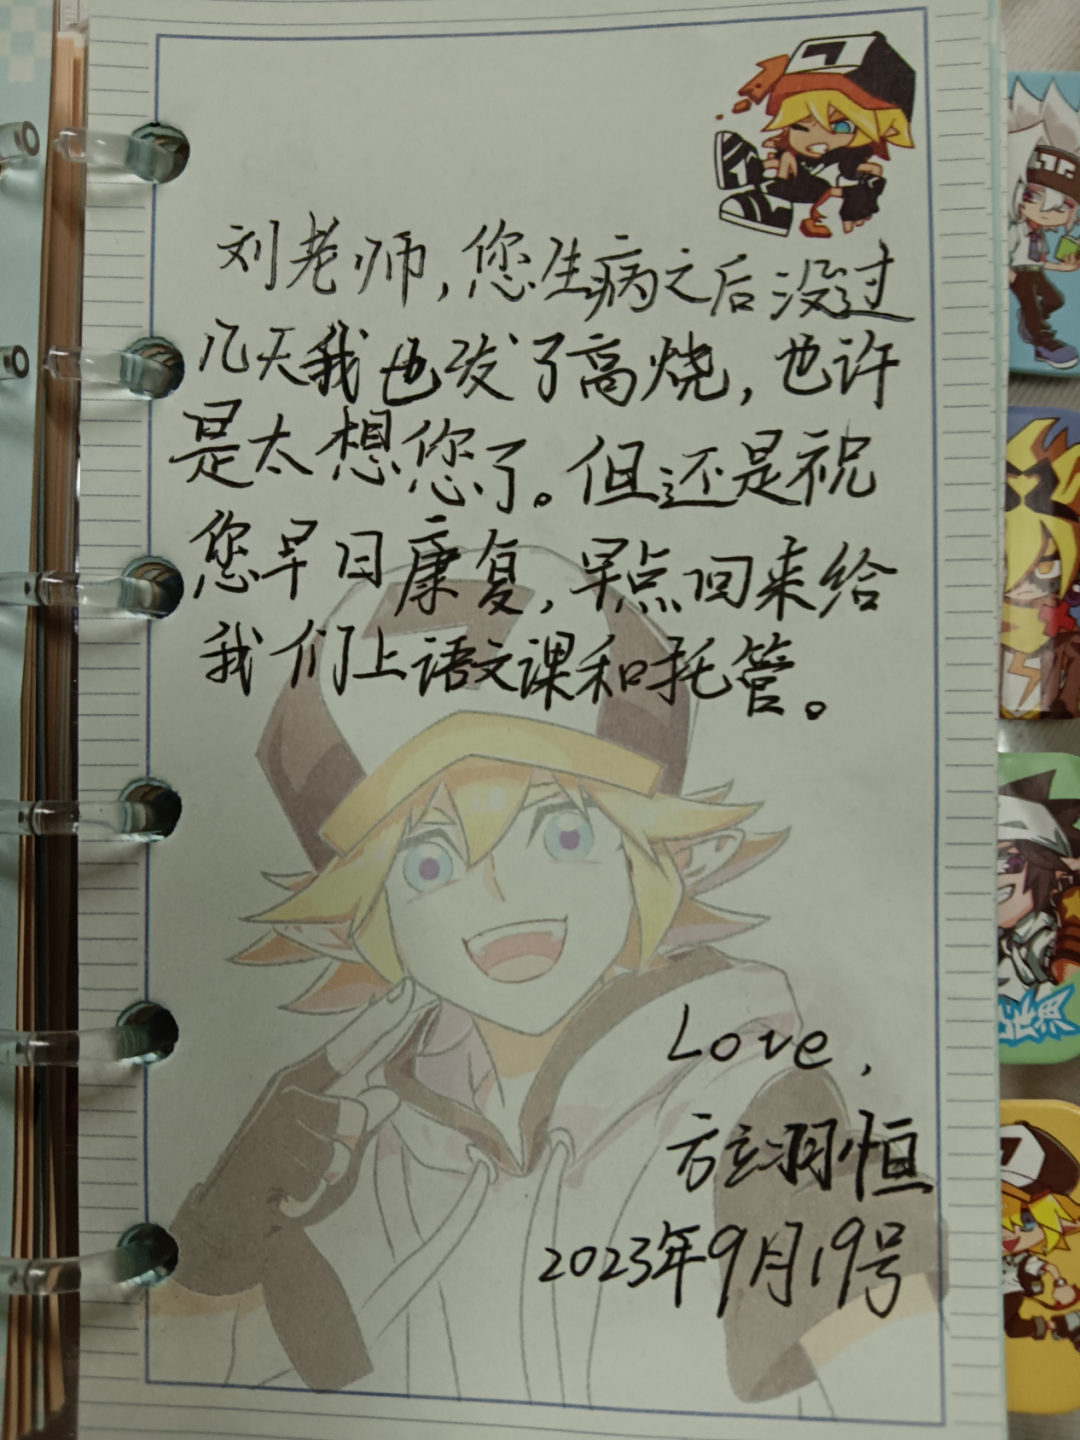 刘老师,您生病之后没过
几天我也发了高烧,也许
是太想您了。但还是祝
您早日康复,早点回来给
我们上语文课和托管。
Love,
方玄羽恒
2023年9月19号